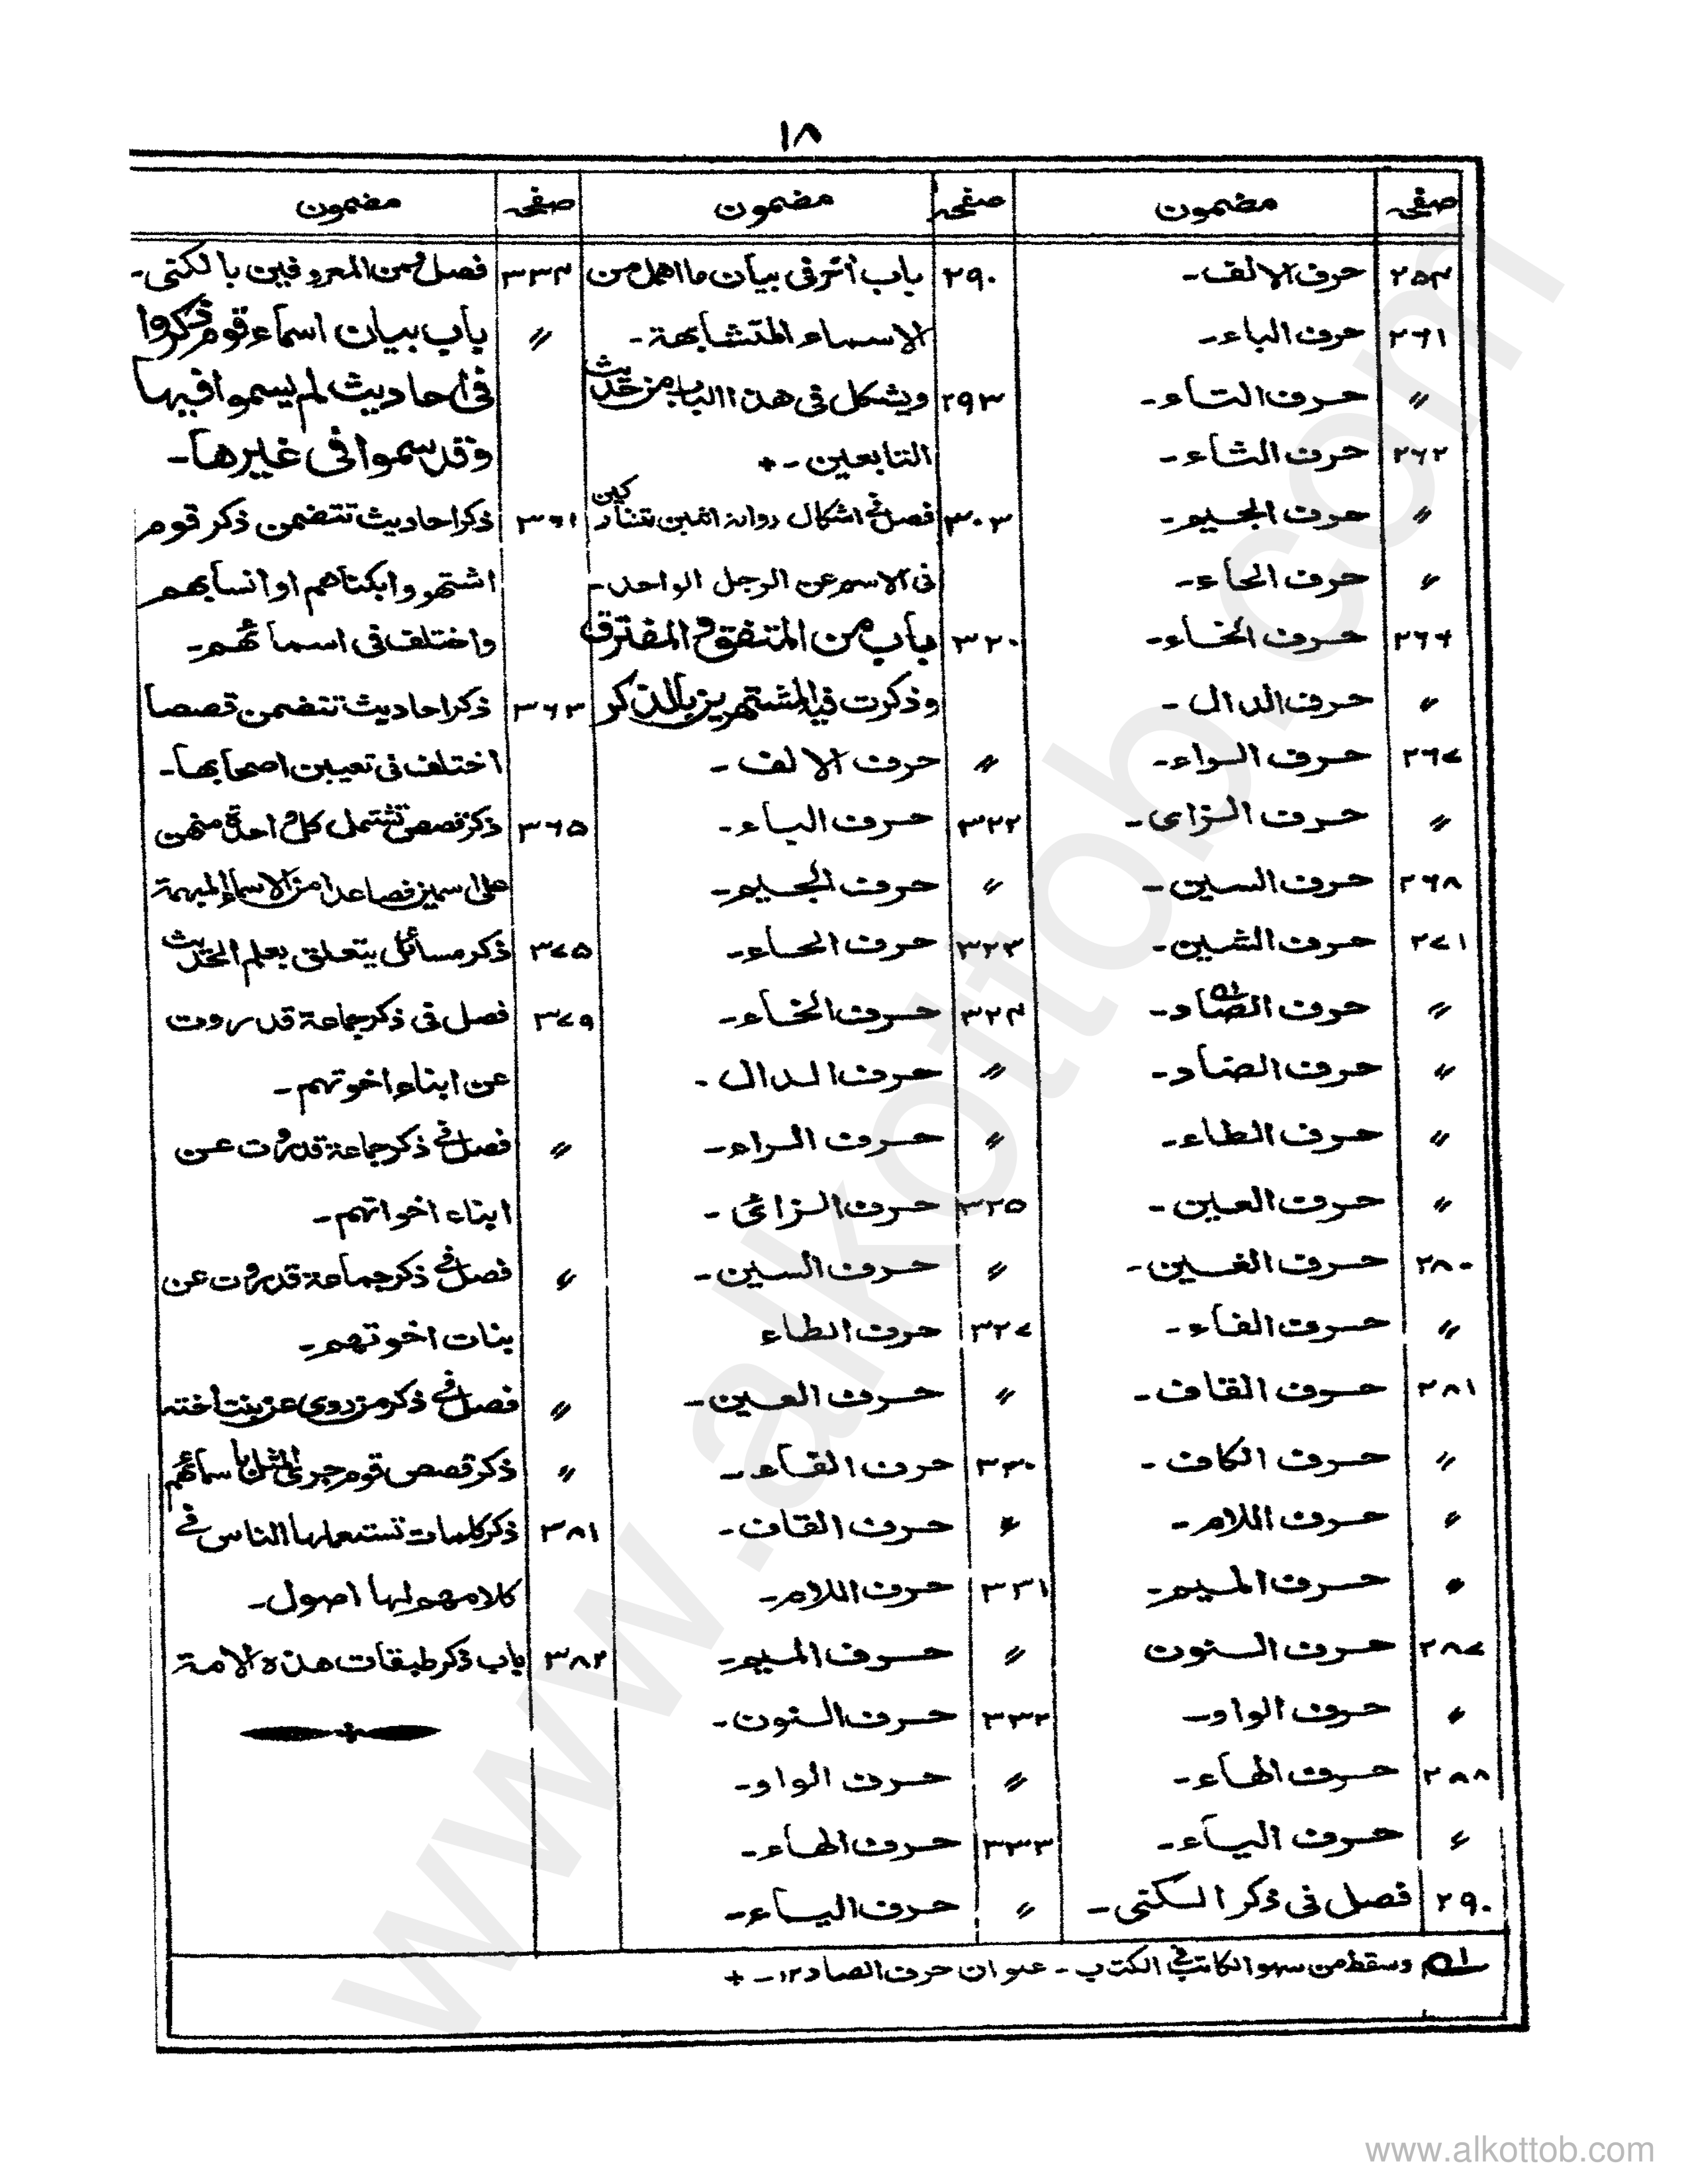 ١٨
صفحہ مضمون
٢٥٤ حرف الالف۔
٢٦١ حرف الباء۔
〃 حرف التاء۔
٢٦٢ حرف الثاء۔
〃 حرف الجیم۔
〃 حرف الحاء۔
٢٦٦ حرف الخاء۔
〃 حرف الدال۔
٢٦٧ حرف الراء۔
〃 حرف الزای۔
٢٦٨ حرف السین۔
٢٧١ حرف الشین۔
〃 حرف الصاد۔ ۵۱
〃 حرف الضاد۔
〃 حرف الطاء۔
〃 حرف العین۔
٢٨٠ حرف الغین۔
〃 حرف الفاء۔
٢٨١ حرف القاف۔
〃 حرف الکاف۔
〃 حرف اللام۔
〃 حرف المیم۔
٢٨٧ حرف النون
〃 حرف الواو۔
٢٨٨ حرف الهاء۔
〃 حرف الیاء۔
٢٩٠ فصل فی ذکر الکنی۔
صفحہ مضمون
٢٩٠ باب اخر فی بیان ما اهمل من
الاسماء المتشابهة۔
٢٩٣ ویشکل فی هذا الباب من حدیث
التابعین۔+
٣٠٣ فصل فی اشکال روایة اثنین تشارکین
فی الاسم عن الرجل الواحد۔
٣٢٠ باب من المتفق و المفترق
وذکرت فیه المشتهرین بالذکر
〃 حرف الالف۔
٣٢٢ حرف الباء۔
〃 حرف الجیم۔
٣٢٣ حرف الحاء۔
٣٢٤ حرف الخاء۔
〃 حرف الدال۔
〃 حرف الراء۔
٣٢٥ حرف الزائ۔
〃 حرف السین۔
٣٢٧ حرف الطاء
〃 حرف العین۔
٣٣٠ حرف الفاء۔
〃 حرف القاف۔
٣٣١ حرف اللام۔
〃 حرف المیم۔
٣٣٢ حرف النون۔
〃 حرف الواو۔
٣٣٣ حرف الهاء۔
〃 حرف الیاء۔
صفحہ مضمون
٣٣٤ فصل ومن المعروفین بالکنی۔
〃 باب بیان اسماء قوم ذکروا
فی احادیث لم یسموا فیها
وقد سموا فی غیرها۔
٣٦١ ذکر احادیث تتضمن ذکر قوم
اشتهروا بکناهم او انسابهم
واختلف فی اسمائهم۔
٣٦٣ ذکر احادیث تتضمن قصصا
اختلف فی تعیین اصحابها۔
٣٦٥ ذکر قصص تشتمل کل واحدة منهن
علی اسمین فصاعدا من الاسماء المبهمة
٣٧٥ ذکر مسائل یتعلق بعلم الحدیث
٣٧٩ فصل فی ذکر جماعة قد روت
عن ابناء اخوتهم۔
〃 فصل فی ذکر جماعة قد روت عن
ابناء اخواتهم۔
〃 فصل فی ذکر جماعة قد روت عن
بنات اخوتهم۔
〃 فصل فی ذکر من روی عن بنت اخته
〃 ذکر قصص قوم جری المثل باسمائهم
٣٨١ ذکر کلمات تستعملها الناس فی
کلامهم لها اصول۔
٣٨٢ باب ذکر طبقات هذه الامة
۵۱ وسقط من سهو الکاتب فی الکتب۔ عنوان حرف الصاد ١٢۔+
www.alkottob.com
www.alkottob.com